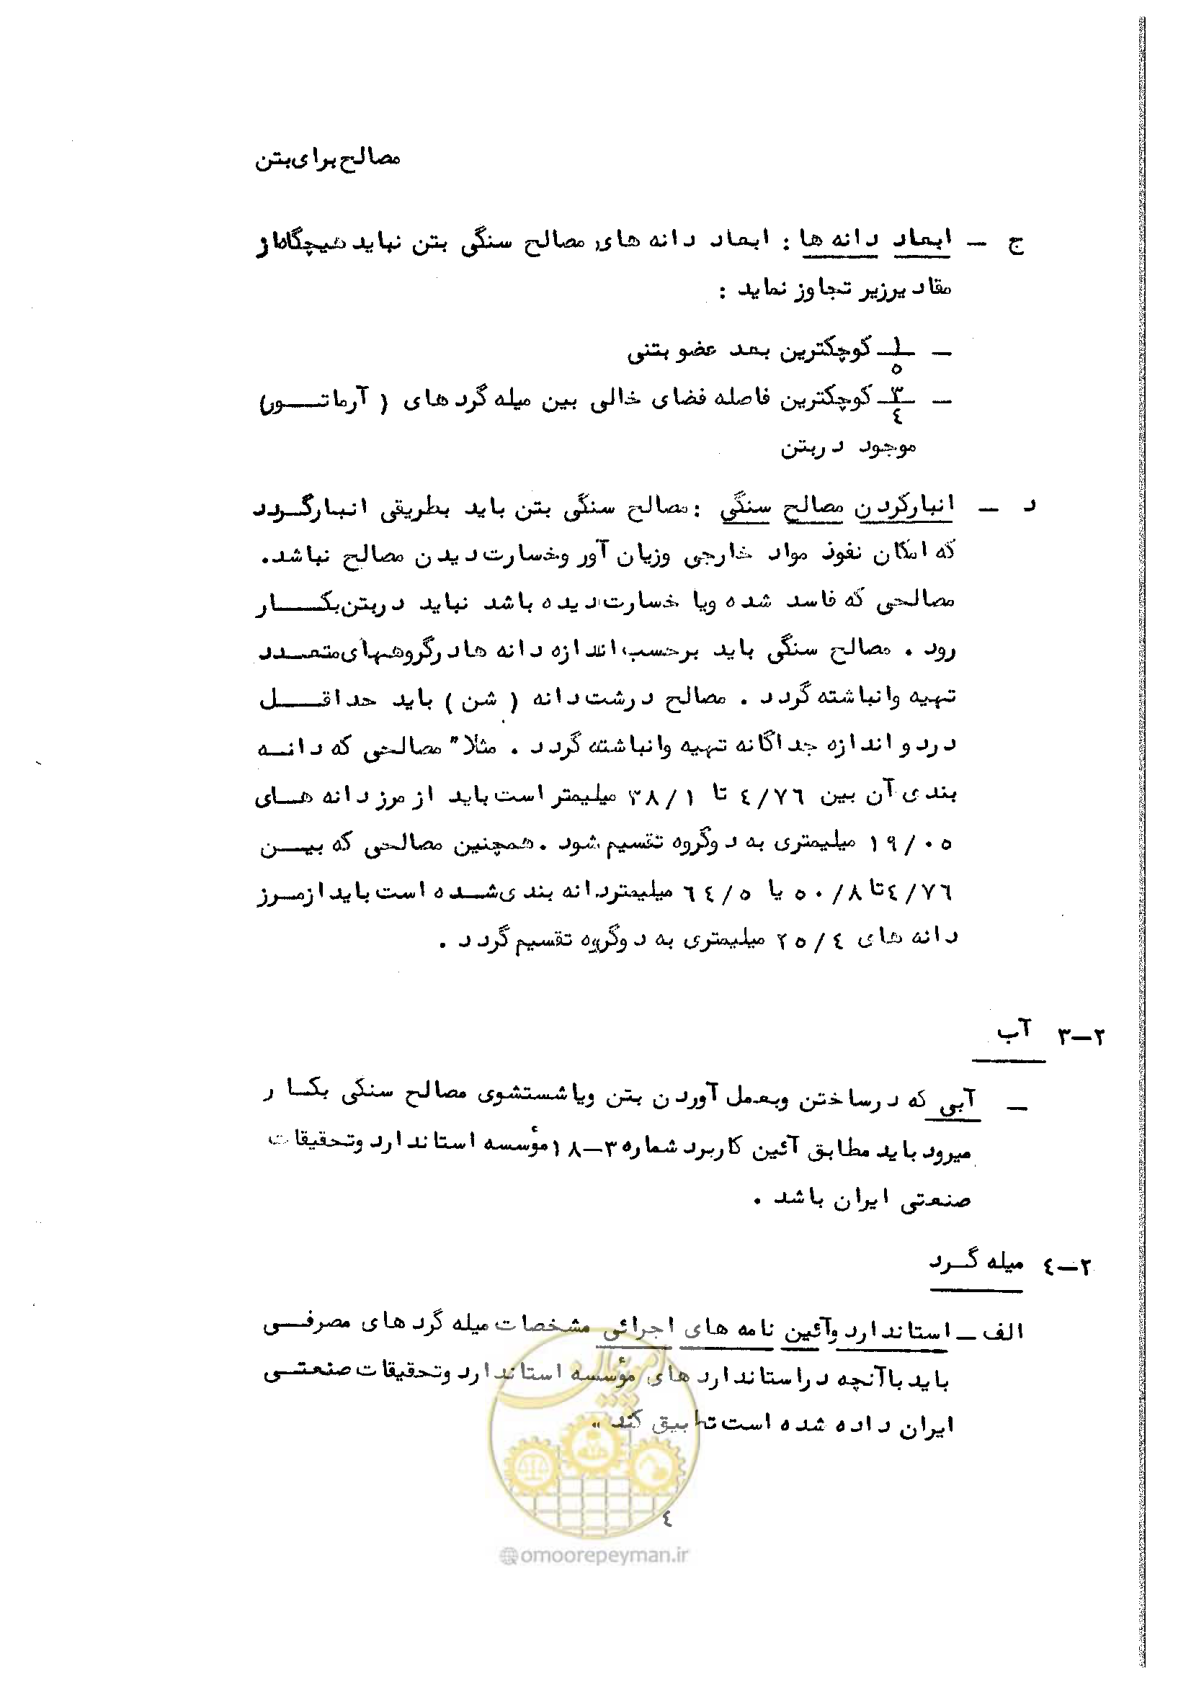 مصالح برای بتن
ج ـ ابعاد دانه ها : ابعاد دانه های مصالح سنگی بتن نباید هیچگاه از
مقادیر زیر تجاوز نماید :
ـ ۱/۵ کوچکترین بعد عضو بتنی
ـ ۳/٤ کوچکترین فاصله فضای خالی بین میله گرد های ( آرماتــور)
موجود در بتن
د ـ انبار کردن مصالح سنگی : مصالح سنگی بتن باید بطریقی انبار گــردد
که امکان نفوذ مواد خارجی وزیان آور وخسارت دیدن مصالح نباشد.
مصالحی که فاسد شده ویا خسارت دیده باشد نباید در بتن بکــار
رود . مصالح سنگی باید برحسب اندازه دانه ها در گروههای متعـدد
تهیه وانباشته گردد . مصالح درشت دانه ( شن ) باید حداقــل
در دو اندازه جداگانه تهیه وانباشته گردد . مثلا" مصالحی که دانــه
بندی آن بین ٤/٧٦ تا ۳۸/۱ میلیمتر است باید از مرز دانه هــای
۱۹/۰۵ میلیمتری به دوگروه تقسیم شود . همچنین مصالحی که بیــن
٤/٧٦ تا ۵۰/۸ یا ٦٤/۵ میلیمتر دانه بندی شــده است باید از مــرز
دانه های ۲۵/٤ میلیمتری به دوگروه تقسیم گردد .
۲ـ۳ آب
ـ آبی که در ساختن وبعمل آوردن بتن ویا شستشوی مصالح سنگی بکــار
میرود باید مطابق آئین کاربرد شماره ۳ـ۱۸ مؤسسه استاندارد وتحقیقات
صنعتی ایران باشد .
۲ـ٤ میله گــرد
الف ـ استاندارد وآئین نامه های اجرائی مشخصات میله گرد های مصرفــی
باید باآنچه در استاندارد های مؤسسه استاندارد وتحقیقات صنعتــی
ایران داده شده است تطبیق کند .
امور پیمان
٤
omoorepeyman.ir